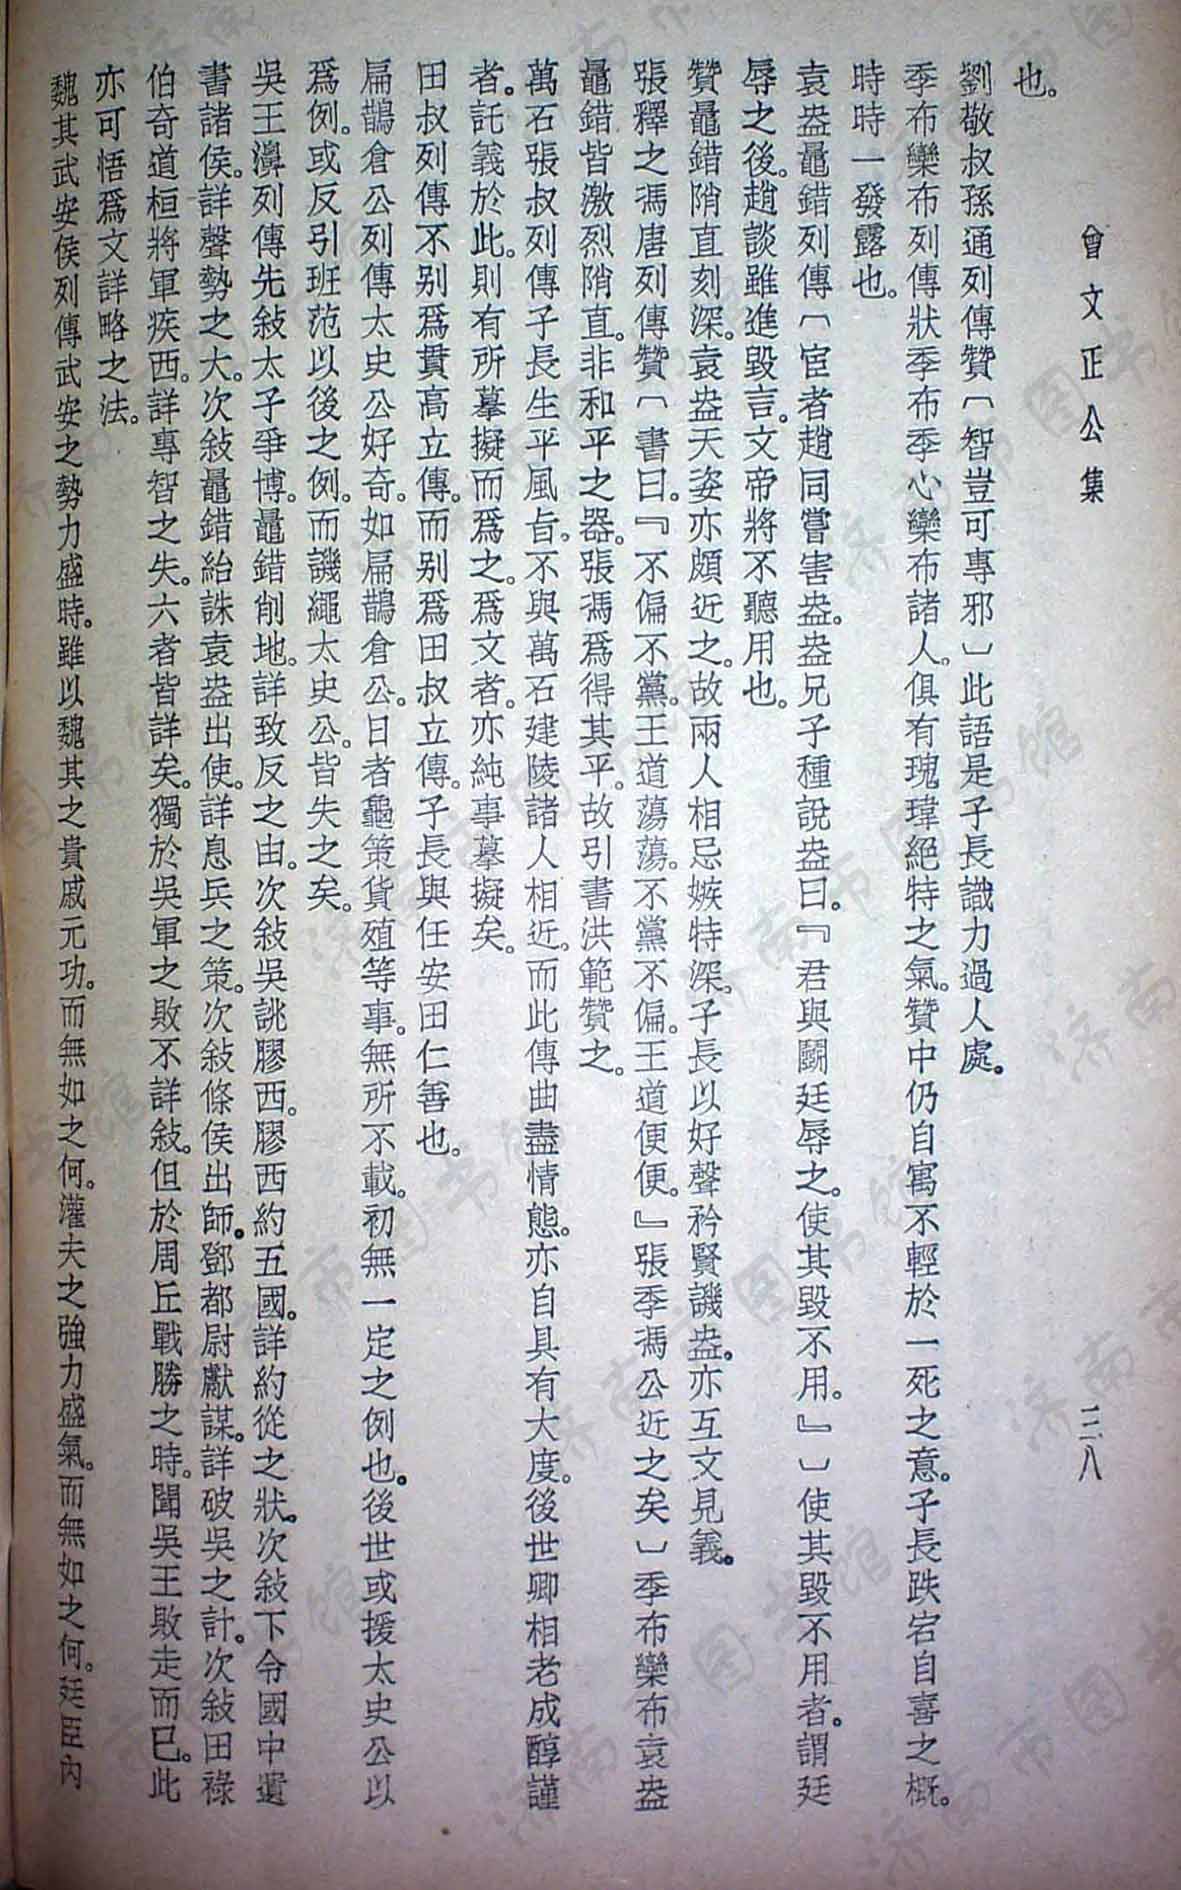 曾文正公集
三八
也。
劉敬叔孫通列傳贊〔智豈可專邪〕此語是子長識力過人處。
季布欒布列傳狀季布季心欒布諸人。俱有瑰瑋絕特之氣。贊中仍自寓不輕於一死之意。子長跌宕自喜之概。
時時一發露也。
袁盎鼂錯列傳〔宦者趙同嘗害盎。盎兄子種說盎曰。『君與鬬廷辱之。使其毀不用。』〕使其毀不用者。謂廷
辱之後。趙談雖進毀言。文帝將不聽用也。
贊鼂錯陗直刻深。袁盎天姿亦頗近之。故兩人相忌嫉特深。子長以好聲矜賢譏盎。亦互文見義。
張釋之馮唐列傳贊〔書曰。『不偏不黨。王道蕩蕩。不黨不偏。王道便便。』張季馮公近之矣〕季布欒布袁盎
鼂錯皆激烈陗直。非和平之器。張馮爲得其平。故引書洪範贊之。
萬石張叔列傳子長生平風旨。不與萬石建陵諸人相近。而此傳曲盡情態。亦自具有大度。後世卿相老成醇謹
者。託義於此。則有所摹擬而爲之。爲文者。亦純事摹擬矣。
田叔列傳不别爲貫高立傳。而别爲田叔立傳。子長與任安田仁善也。
扁鵲倉公列傳太史公好奇。如扁鵲倉公。日者龜策貨殖等事。無所不載。初無一定之例也。後世或援太史公以
爲例。或反引班范以後之例。而譏繩太史公。皆失之矣。
吳王濞列傳先敍太子爭博。鼂錯削地。詳致反之由。次敍吳誂膠西。膠西約五國。詳約從之狀。次敍下令國中遺
書諸侯。詳聲勢之大。次敍鼂錯紿誅袁盎出使。詳息兵之策。次敍條侯出師。鄧都尉獻謀。詳破吳之計。次敍田祿
伯奇道桓將軍疾西。詳專智之失。六者皆詳矣。獨於吳軍之敗不詳敍。但於周丘戰勝之時。聞吳王敗走而已。此
亦可悟爲文詳略之法。
魏其武安侯列傳武安之勢力盛時。雖以魏其之貴戚元功。而無如之何。灌夫之強力盛氣。而無如之何。廷臣內